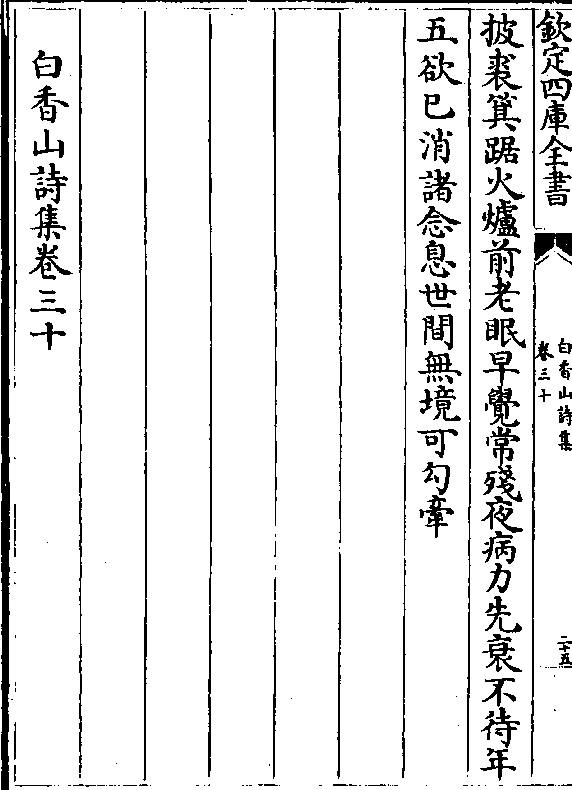 欽定四庫全書
白香山詩集
卷三十
二十五
披裘箕踞火爐前老眠早覺常殘夜病力先衰不待年
五欲已消諸念息世間無境可勾牽
白香山詩集卷三十